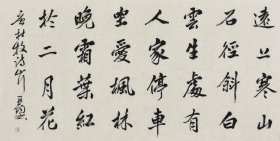 遠上寒山
石徑斜白
雲生處有
人家停車
坐愛楓林
晚霜葉紅
於二月花
唐杜牧詩山行